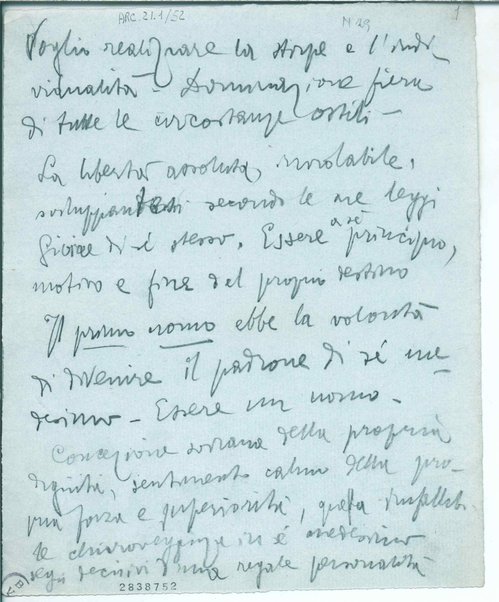 ARC.21.I/52
N 29
1
Voglio realizzare la stirpe e l'indi
vidualità - Dominazione fiera
di tutte le circostanze ostili -
La libertà assoluta, inviolabile,
sviluppantesi secondo le sue leggi
Gioire di sé stesso. Essere a sé principio,
motivo e fine del proprio destino
Il primo uomo ebbe la volontà
di divenire il padrone di sé me
desimo - Essere un uomo -
Concezione sovrana della propria
dignità, sentimento calmo della pro-
pria forza e superiorità, quella infallibi
le chiaroveggenza in sé medesimo
segni decisivi d'una regale personalità
2838752